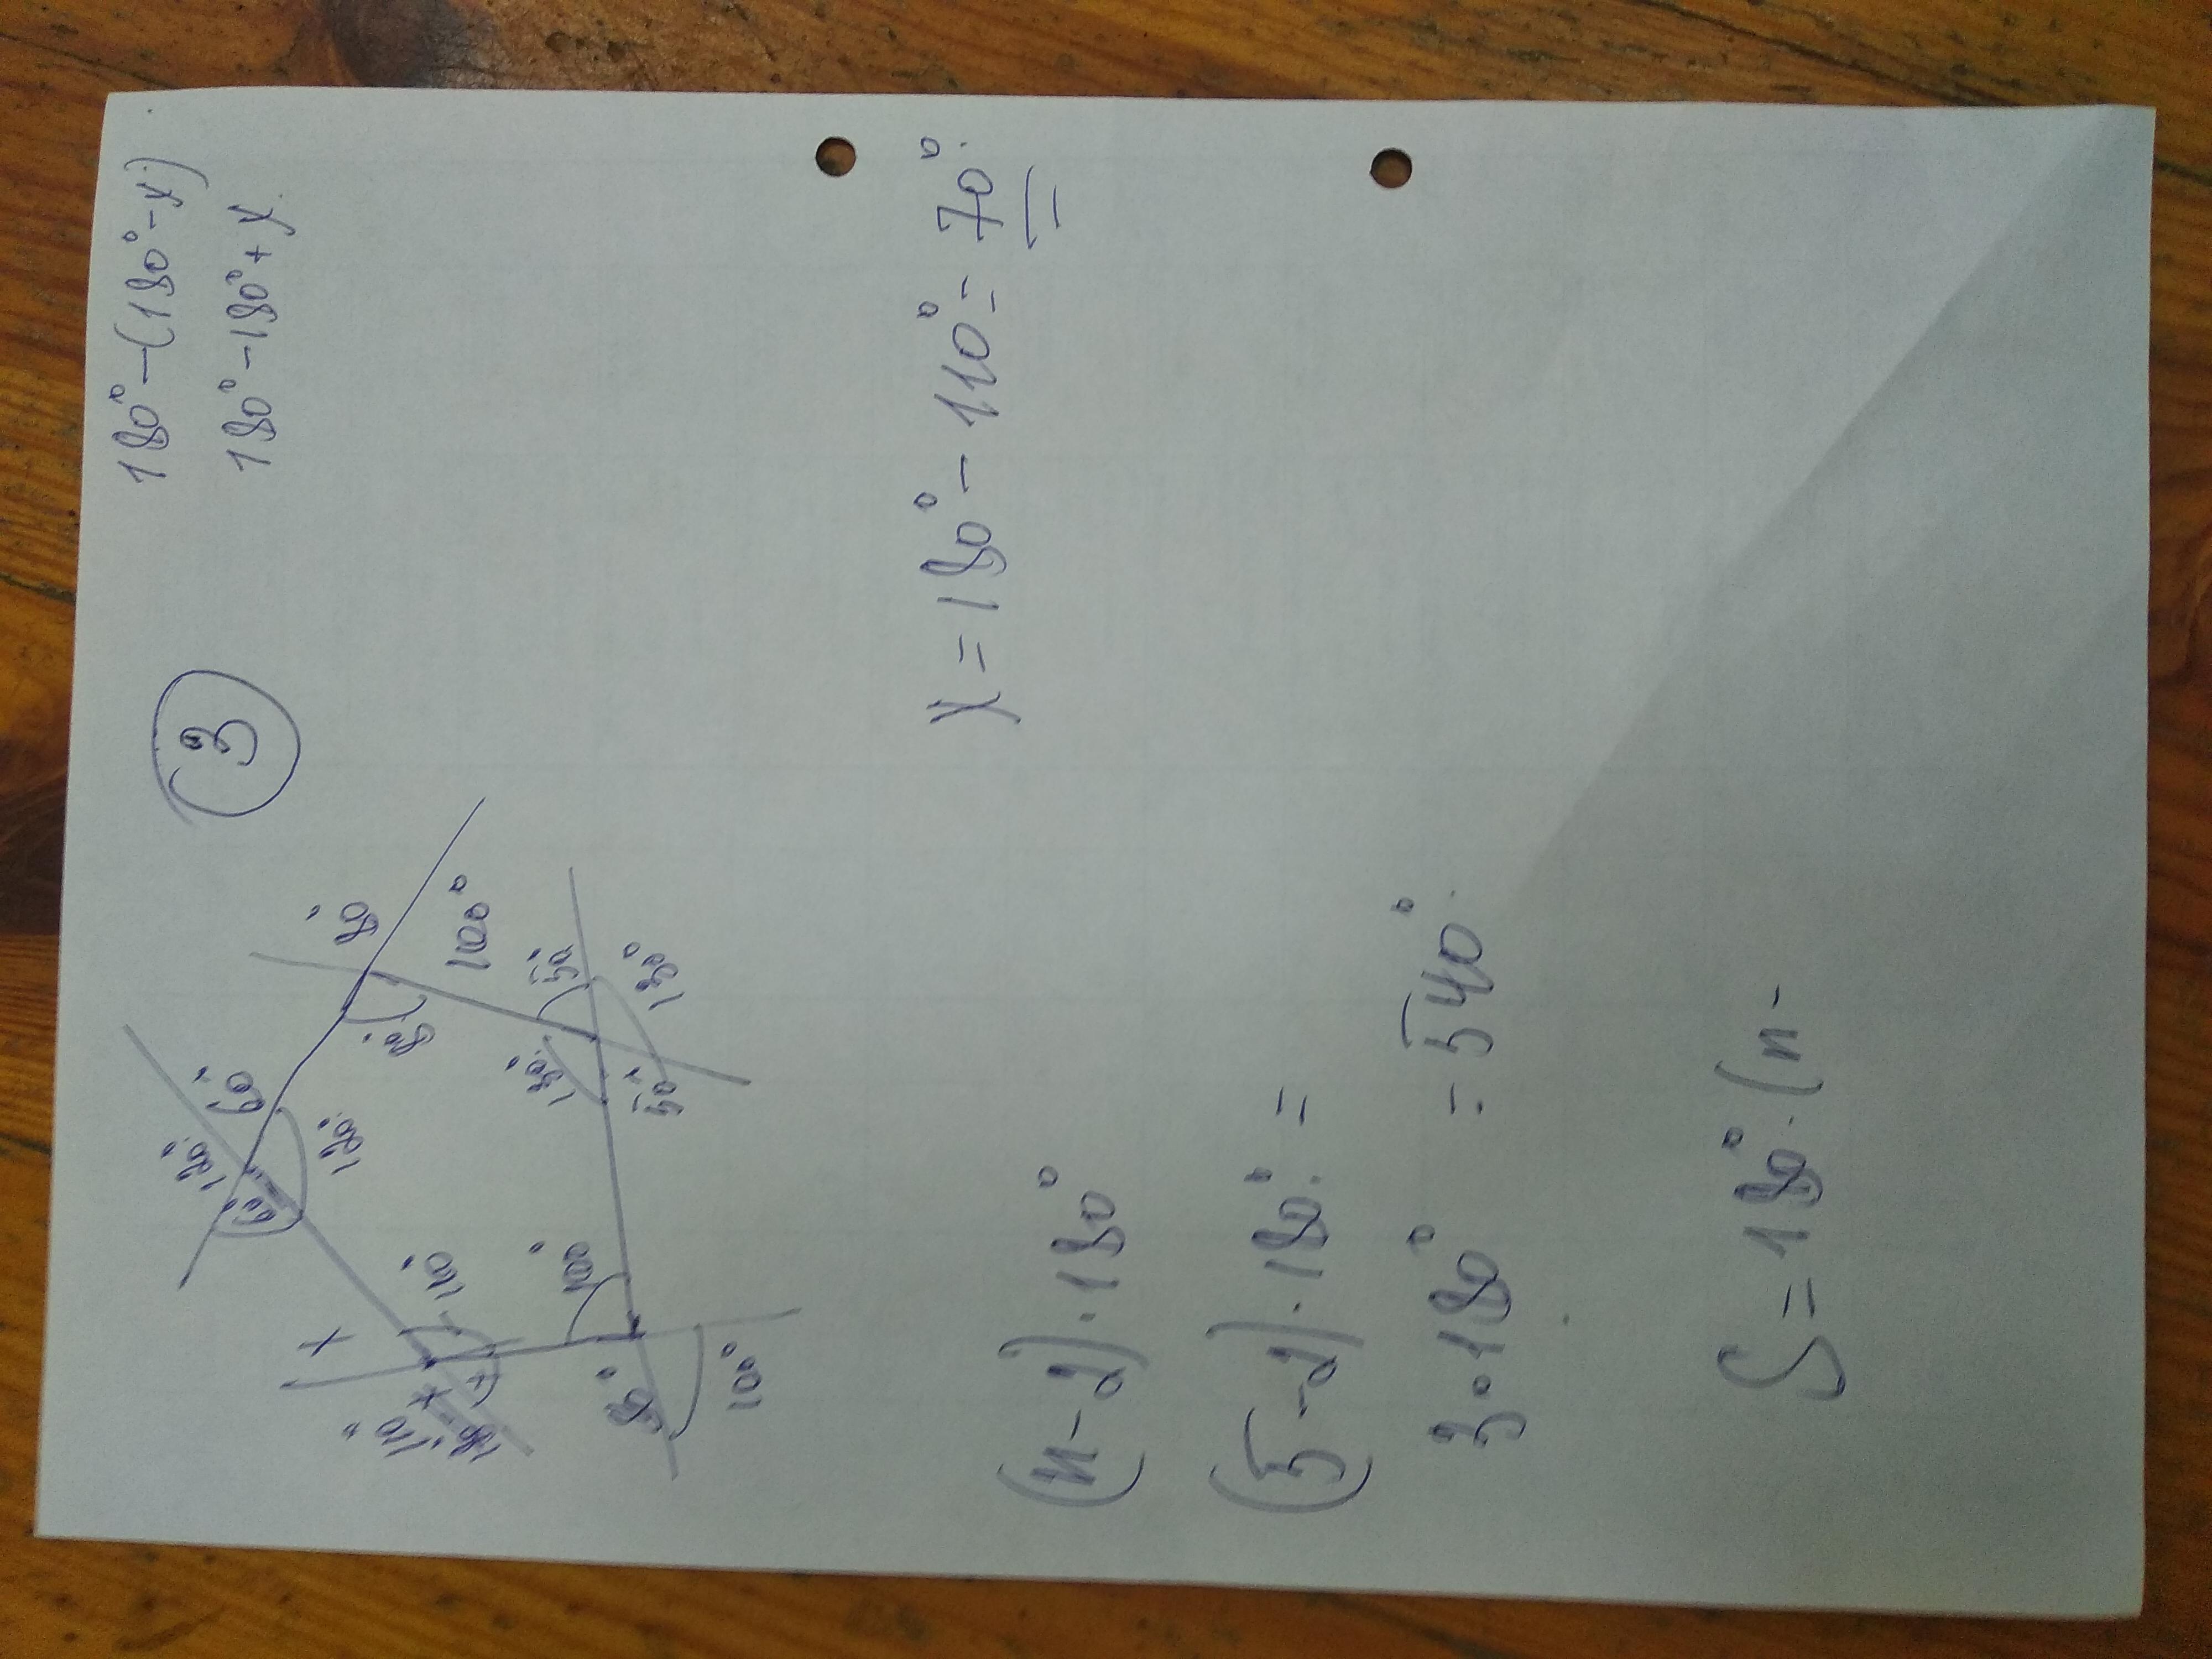 3
180°-(180°-y)
180°-180°+y
x
110°
x
x
110°
120°
60°
60°
120°
80°
80°
100°
50°
130°
130°
50°
100°
80°
100°
x=180°-110°=70°
(n-2)·180°
(5-2)·180°=
3·180°=540°
S=180°·(n-